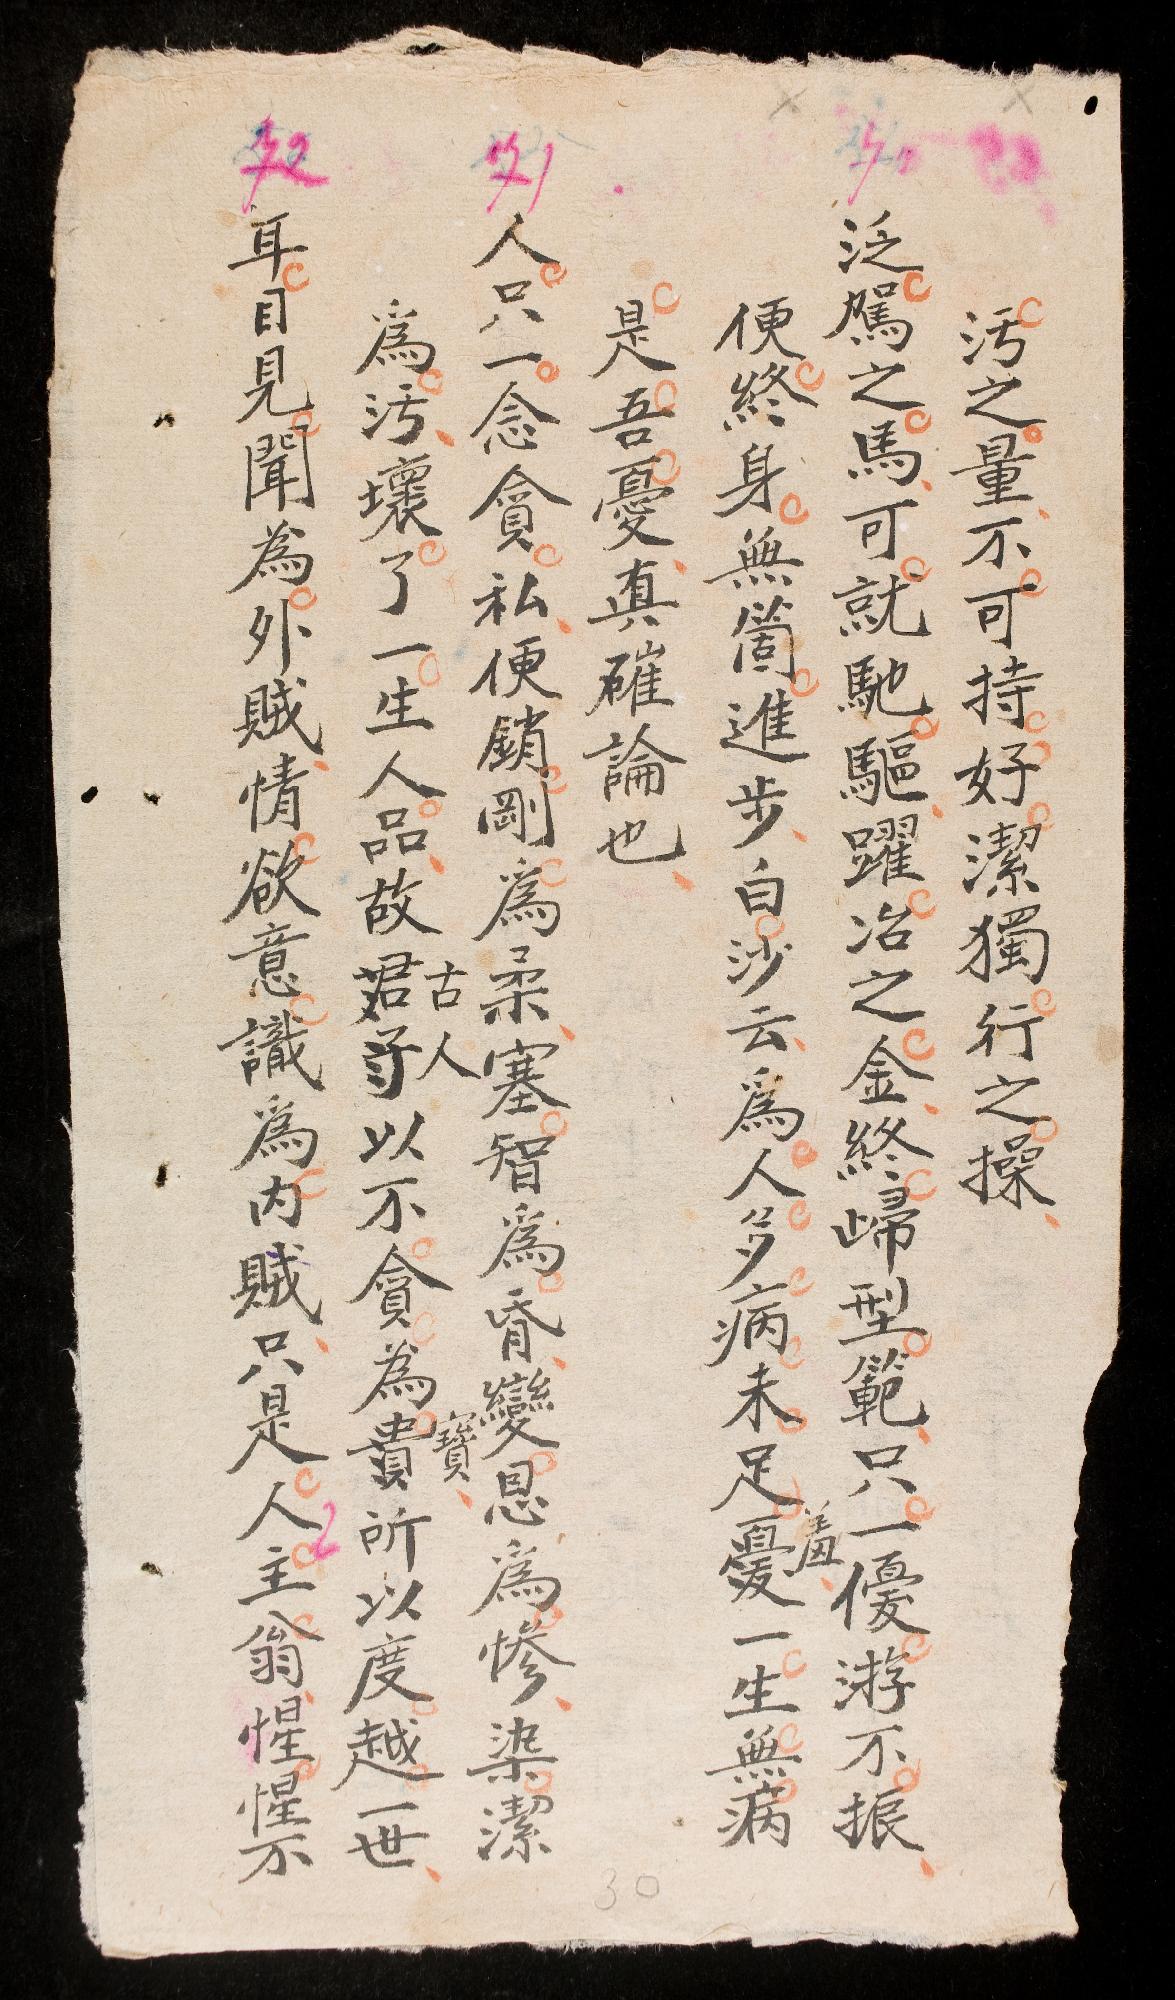 汚之量不可持好潔獨行之操
泛駕之馬可就馳驅躍冶之金終歸型範只一優游不振
便終身無箇進步白沙云為人多病未足羞一生無病
是吾憂真確論也
人只一念貪私便銷剛為柔塞智為昏變恩為慘染潔
為汚壞了一生人品故古人以不貪為寶所以度越一世
耳目見聞為外賊情欲意識為内賊只是人主翁惺惺不
30